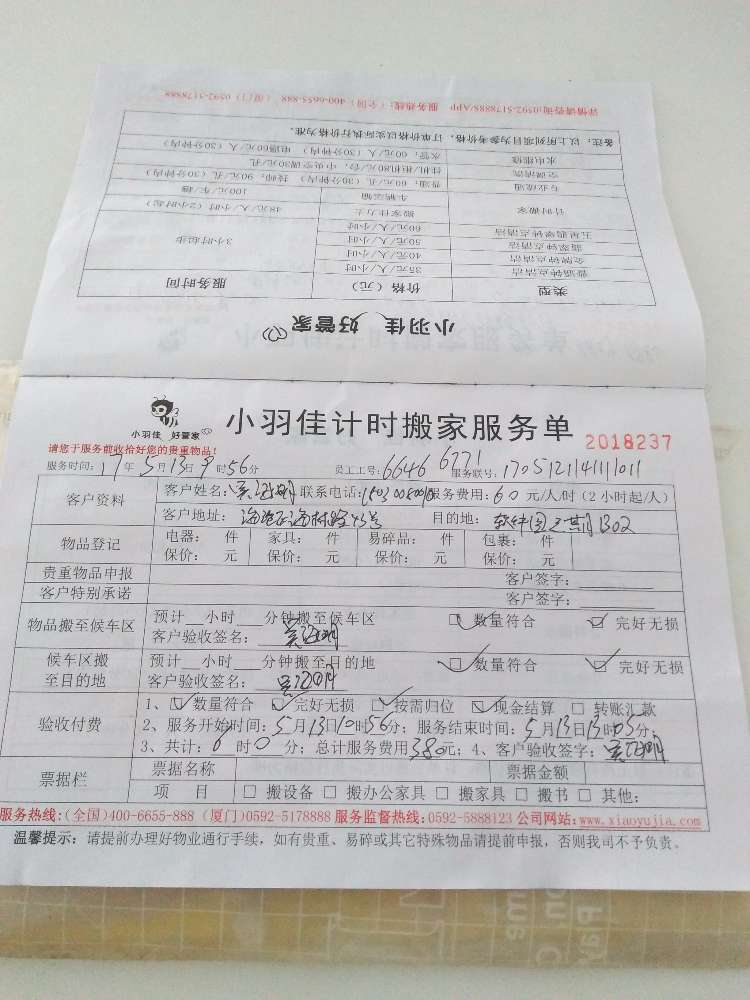 详情请咨询:0592-5178888/APP 服务热线：(全国) 400-6655-888 (厦门) 0592-5178888
小羽佳 好管家
类型 价格（元） 服务时间
普通钟点清洁 35元/人/小时 3小时起步
金牌钟点清洁 40元/人/小时
翡翠钟点清洁 50元/人/小时
五星翡翠钟点清洁 60元/人/小时
计时搬家 搬家佳力士 48元/人/小时 (2小时起)
车辆运输 100元/车/趟
专业疏通 普通：60元/孔 (30分钟内) 技师：90元/孔 (30分钟内)
空调清洗 挂机/柜机80元/台，中央空调30元/孔
水电维修 水管：60元/人 (30分钟内) 电路60元/人 (30分钟内)
备注：以上所列项目为参考价格，订单价格以实际执行价格为准。
小羽佳 好管家
小羽佳计时搬家服务单 2018237
请您于服务前收拾好您的贵重物品！
服务时间：17年5月13日9时56分 员工工号：6646 6771 服务联号：
客户资料 客户姓名： 联系电话： 服务费用：60元/人/时（2小时起/人）
客户地址： 目的地：软件园二期B02
物品登记 电器： 件 家具： 件 易碎品： 件 包裹： 件
保价： 元 保价： 元 保价： 元 保价： 元
贵重物品申报 客户签字：
客户特别承诺 客户签字：
物品搬至候车区 预计__小时__分钟搬至候车区 ☑数量符合 ☑完好无损
客户验收签名：
候车区搬至目的地 预计__小时__分钟搬至目的地 ☑数量符合 ☑完好无损
客户验收签名：
验收付费 1、☑数量符合 ☑完好无损 ☑按需归位 ☑现金结算 □转账汇款
2、服务开始时间：5月13日10时56分；服务结束时间：5月13日13时05分，
3、共计：6时0分；总计服务费用380元；4、客户验收签字：
票据栏 票据名称 票据金额
项 目 □搬设备 □搬办公家具 □搬家具 □搬书 □其他：
服务热线：(全国)400-6655-888 (厦门)0592-5178888 服务监督热线：0592-5888123 公司网站：www.xiaoyujia.com
温馨提示：请提前办理好物业通行手续，如有贵重、易碎或其它特殊物品请提前申报，否则我司不予负责。